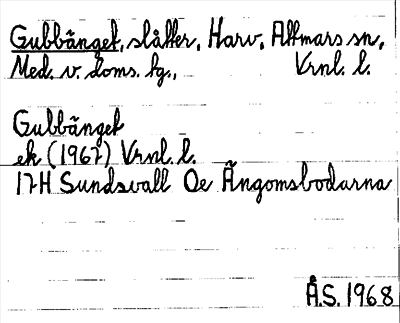 Gubbänget, slåtter, Harv, Attmars sn,
Med. v. doms. tg., Vrnl. l.
Gubbänget
ek (1967) Vrnl. l.
17H Sundsvall Oe Ängomsbodarna
Å.S. 1968